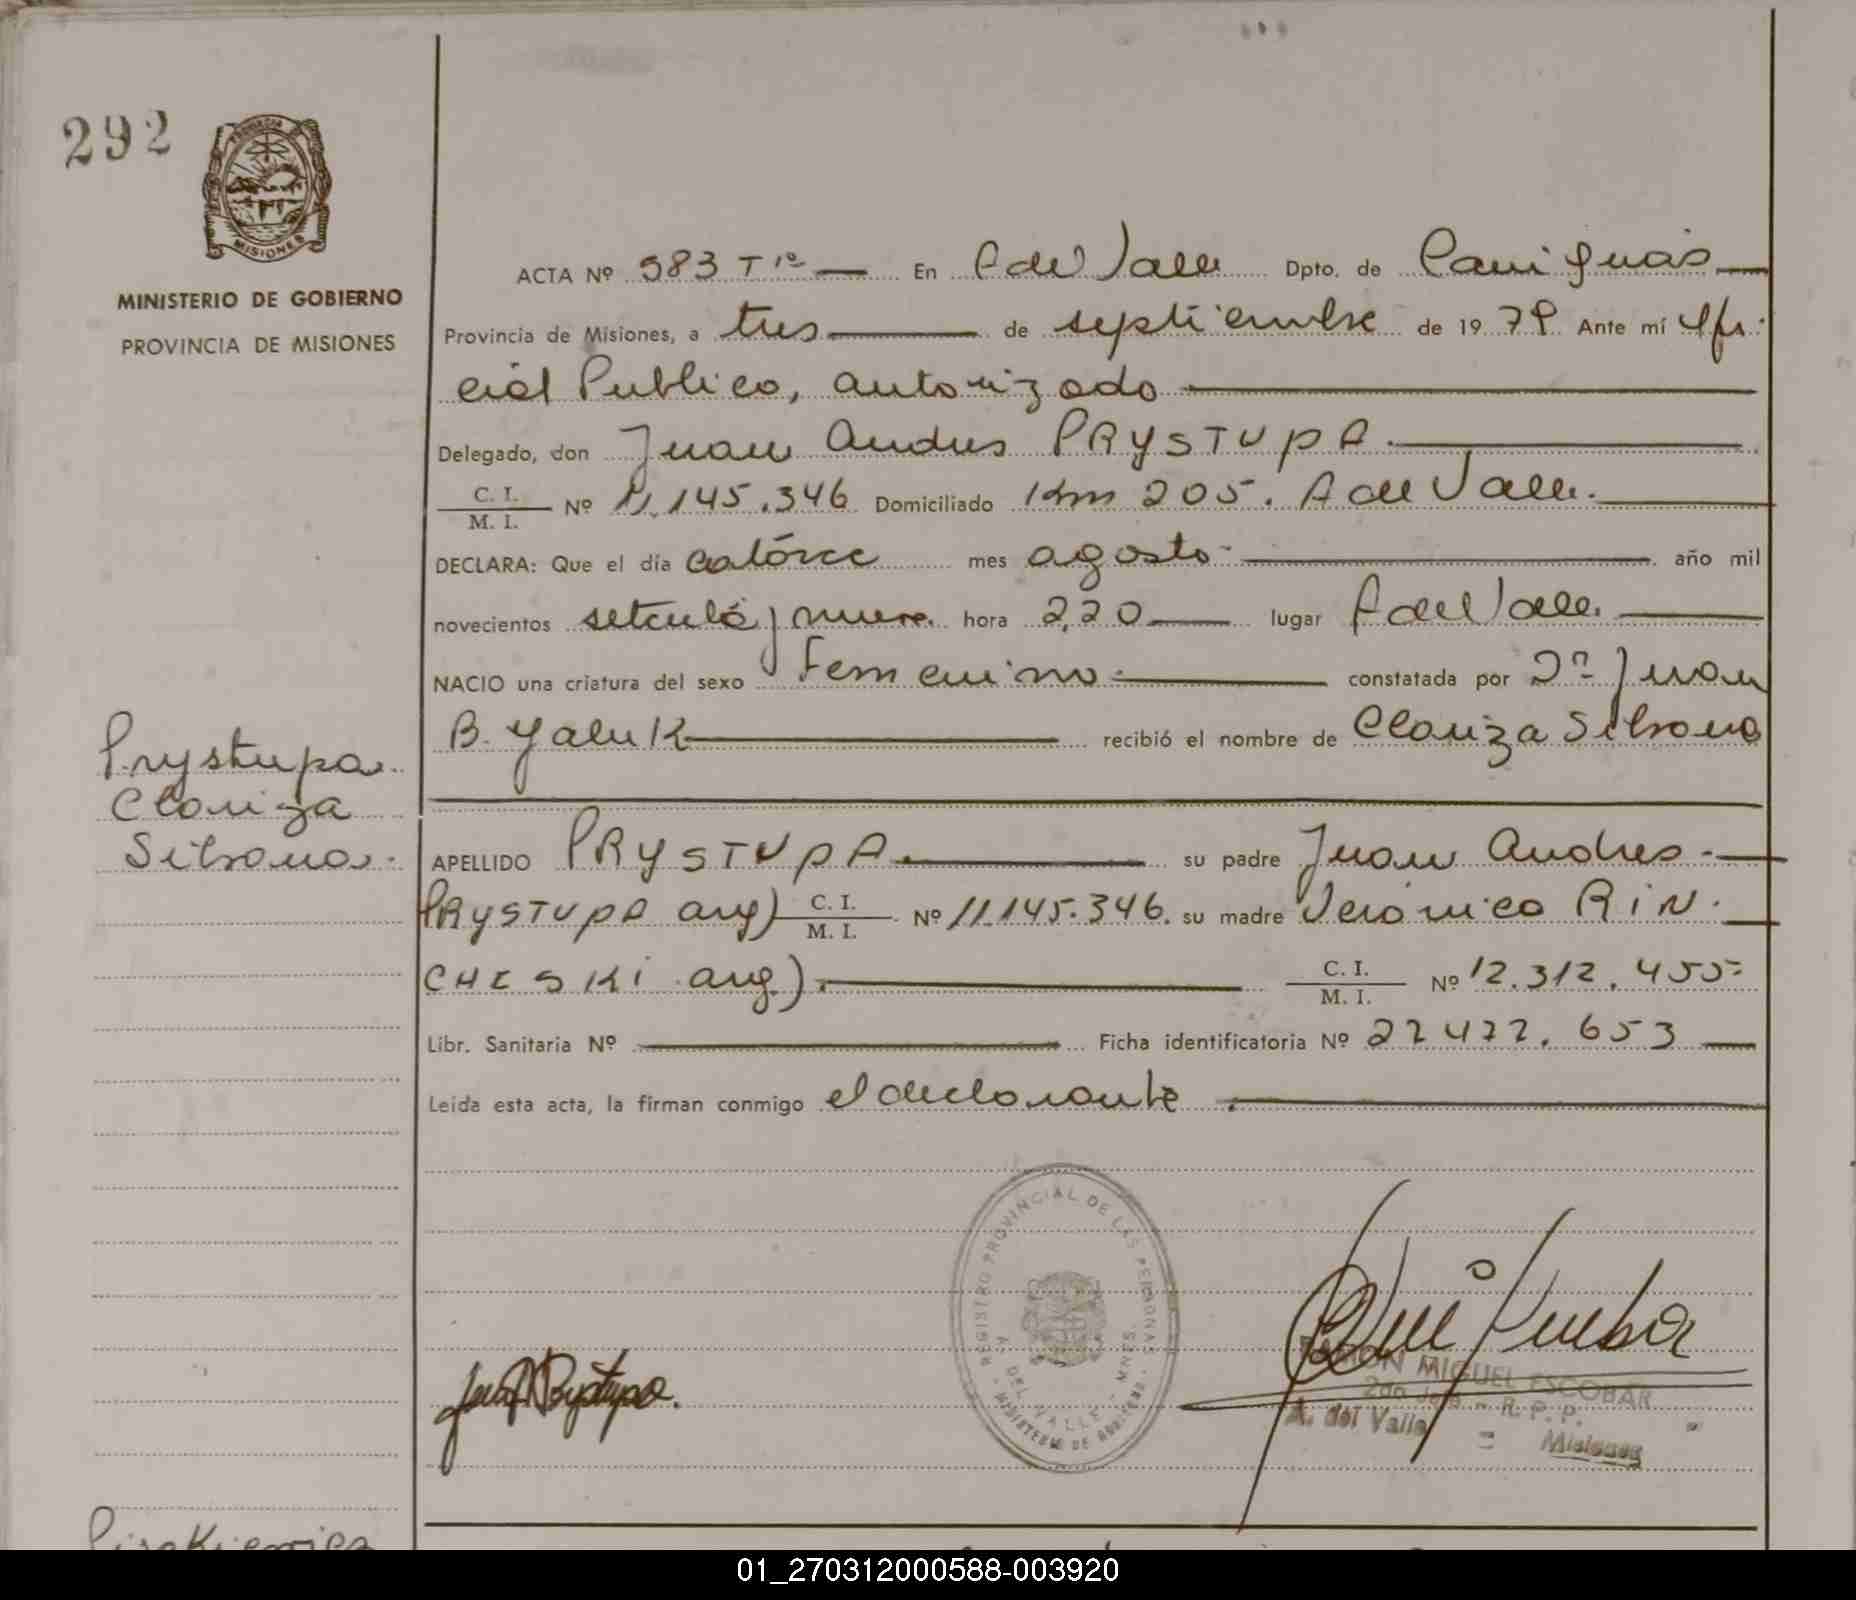 292
PROVINCIA DE
MISIONES
MINISTERIO DE GOBIERNO
PROVINCIA DE MISIONES
ACTA Nº 583 T 1º En A del Valle Dpto. de Cainguás
Provincia de Misiones, a tres de septiembre de 1979 Ante mí Ofi-
cial Publico, autorizado
Delegado, don Juan Andres PRYSTUPA
C. I.
M. I. Nº 11.145.346 Domiciliado Km 205. A del Valle.
DECLARA: Que el día catórce mes agosto año mil
novecientos setenta y nueve. hora 2,20 lugar A del Valle.
NACIO una criatura del sexo Femenino constatada por Dº Juan
B. Yaluk recibió el nombre de Clariza Silvana
Prystupa.
Clariza
Silvana.
APELLIDO PRYSTUPA su padre Juan Andres
PRYSTUPA arg) C. I.
M. I. Nº 11.145.346. su madre Verónica RIN-
CHESKI arg). C. I.
M. I. Nº 12.312.455
Libr. Sanitaria Nº Ficha identificatoria Nº 27.472.653
Leída esta acta, la firman conmigo el declarante
REGISTRO PROVINCIAL DE LAS PERSONAS
A. DEL VALLE - MNES.
MINISTERIO DE GOBIERNO
RAMON MIGUEL ESCOBAR
2do Jefe - R. P. P.
A. del Valle = Misiones
01_270312000588-003920